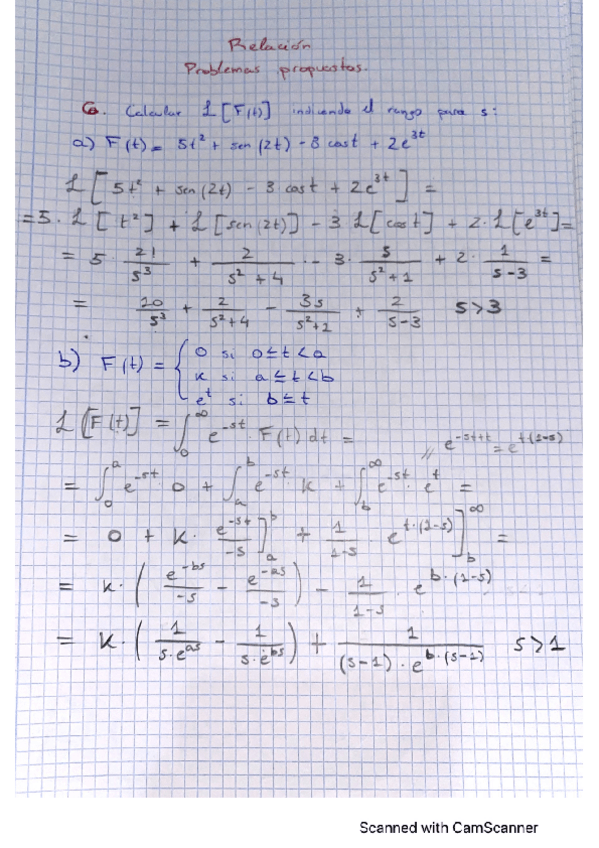 Relación
Problemas propuestos.
6. Calcular L[F(t)] indicando el rango para s:
a) F(t) = 5t² + sen(2t) - 3 cost + 2e^3t
L[5t² + sen(2t) - 3 cost + 2e^3t] =
= 5 · L[t²] + L[sen(2t)] - 3 L[cost] + 2·L[e^3t] =
= 5 · 2!/s³ + 2/(s²+4) - 3 · s/(s²+1) + 2 · 1/(s-3) =
= 10/s³ + 2/(s²+4) - 3s/(s²+1) + 2/(s-3) s>3
b) F(t) = { 0 si 0≤t<a
k si a≤t<b
e^t si b≤t
L[F(t)] = ∫₀^∞ e^-st · F(t) dt = // e^(-st+t) = e^(t(1-s))
= ∫₀^a e^-st · 0 + ∫_a^b e^-st · k + ∫_b^∞ e^-st · e^t =
= 0 + k · e^-st/-s ]_a^b + 1/(1-s) · e^(t·(1-s)) ]_b^∞ =
= k · (e^-bs/-s - e^-as/-s) - 1/(1-s) · e^(b·(1-s))
= k · (1/(s·e^as) - 1/(s·e^bs)) + 1/((s-1)·e^(b·(s-1))) s>1
Scanned with CamScanner